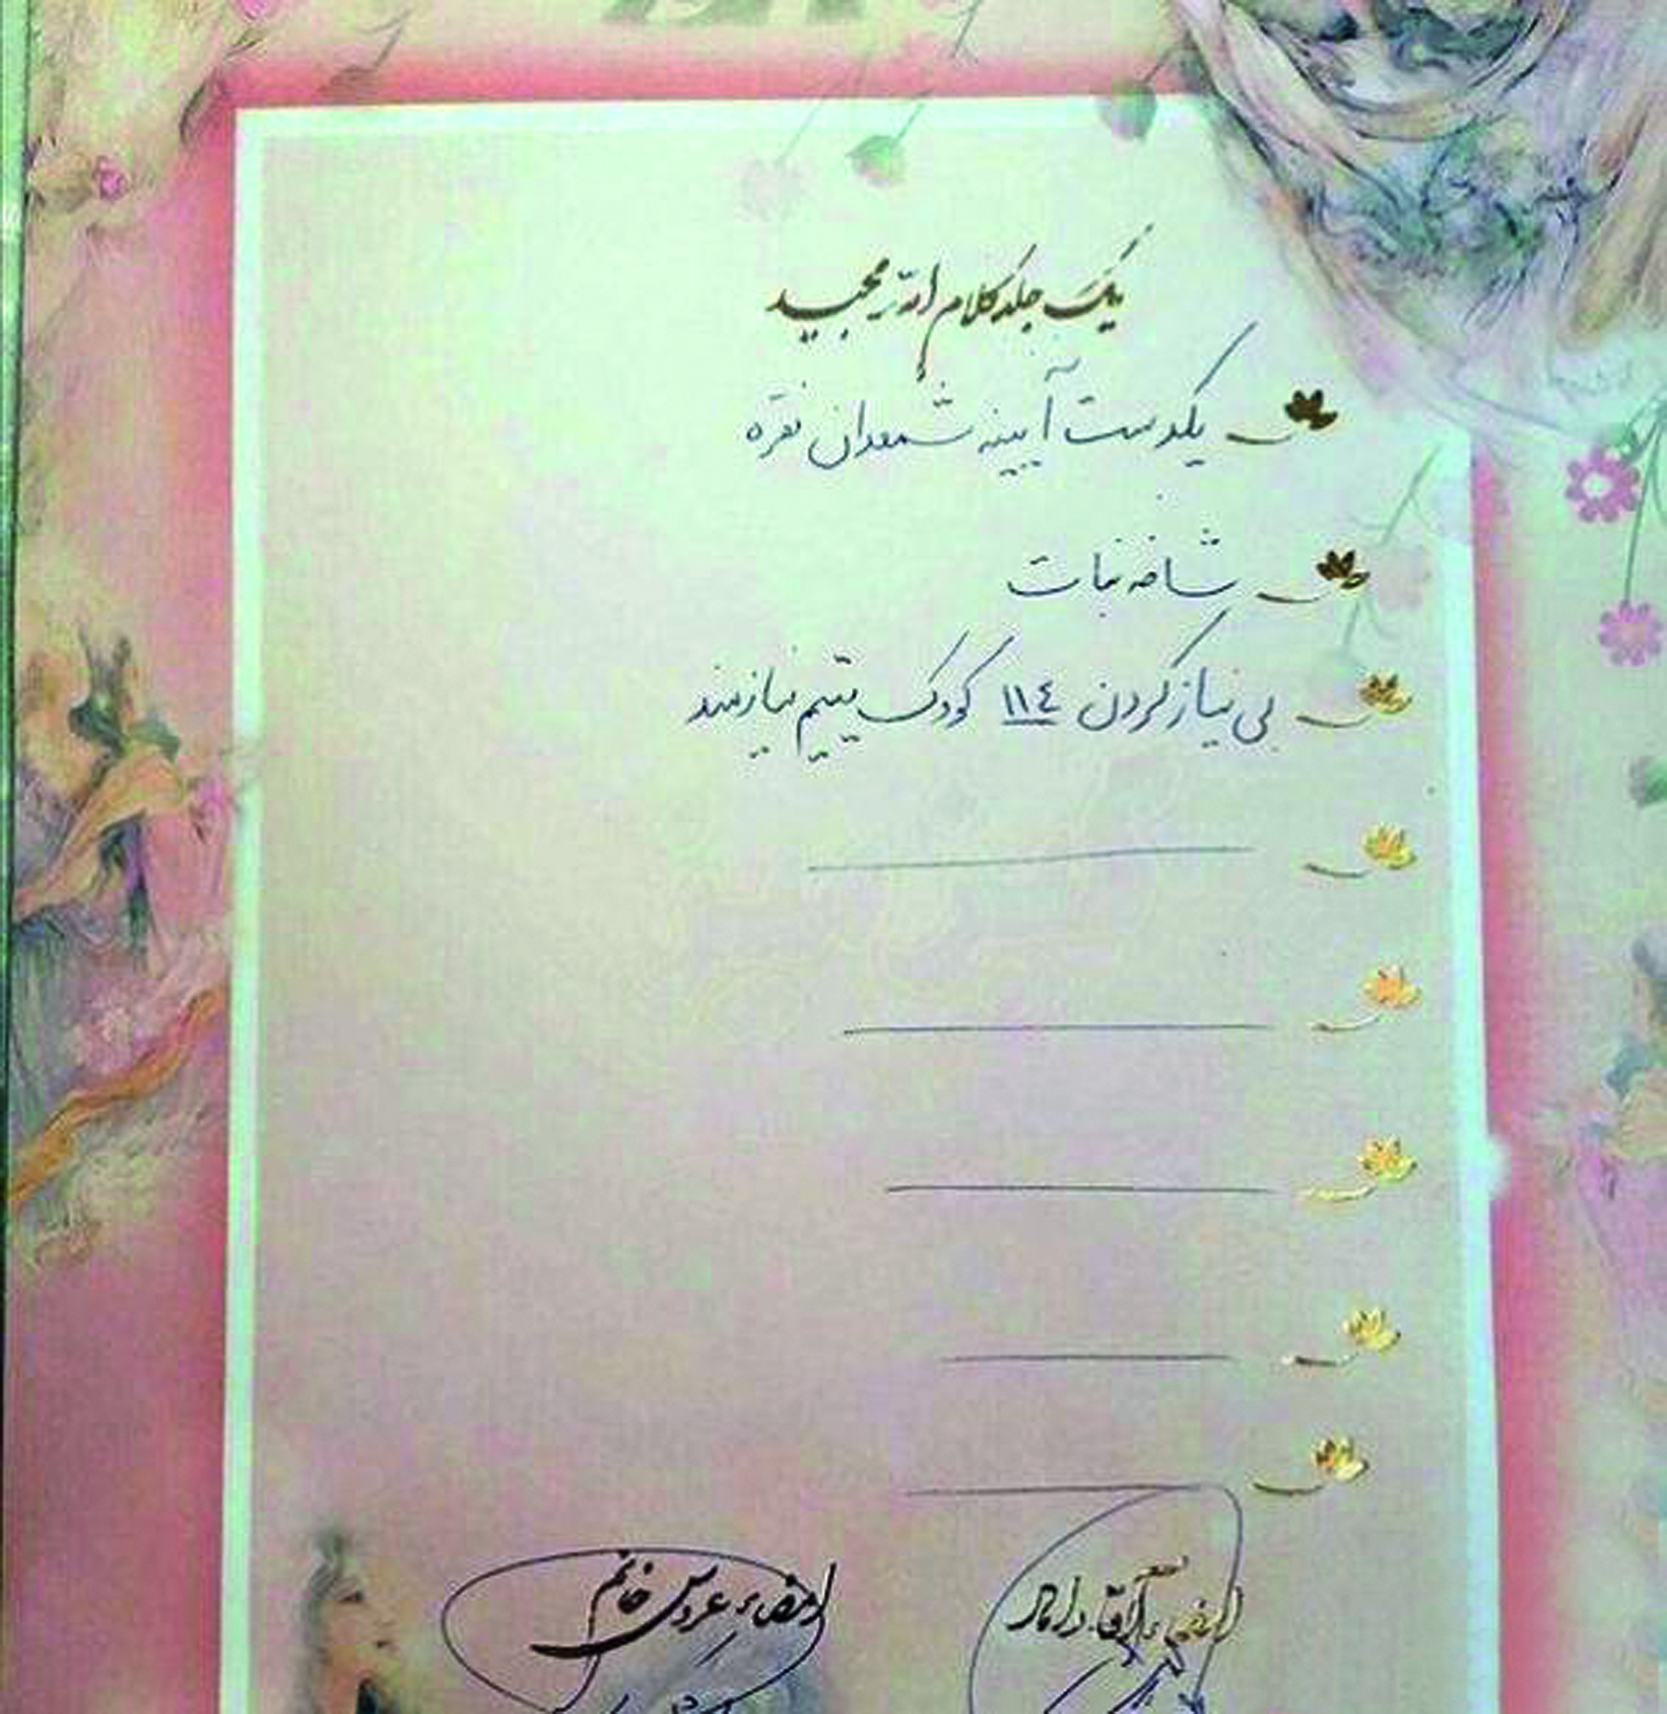 یک جلد کلام ا... مجید
یکدست آیینه شمعدان نقره
شاخه نبات
بی نیاز کردن ١١٤ کودک یتیم نیازمند
امضاء آقا داماد
امضاء عروس خانم